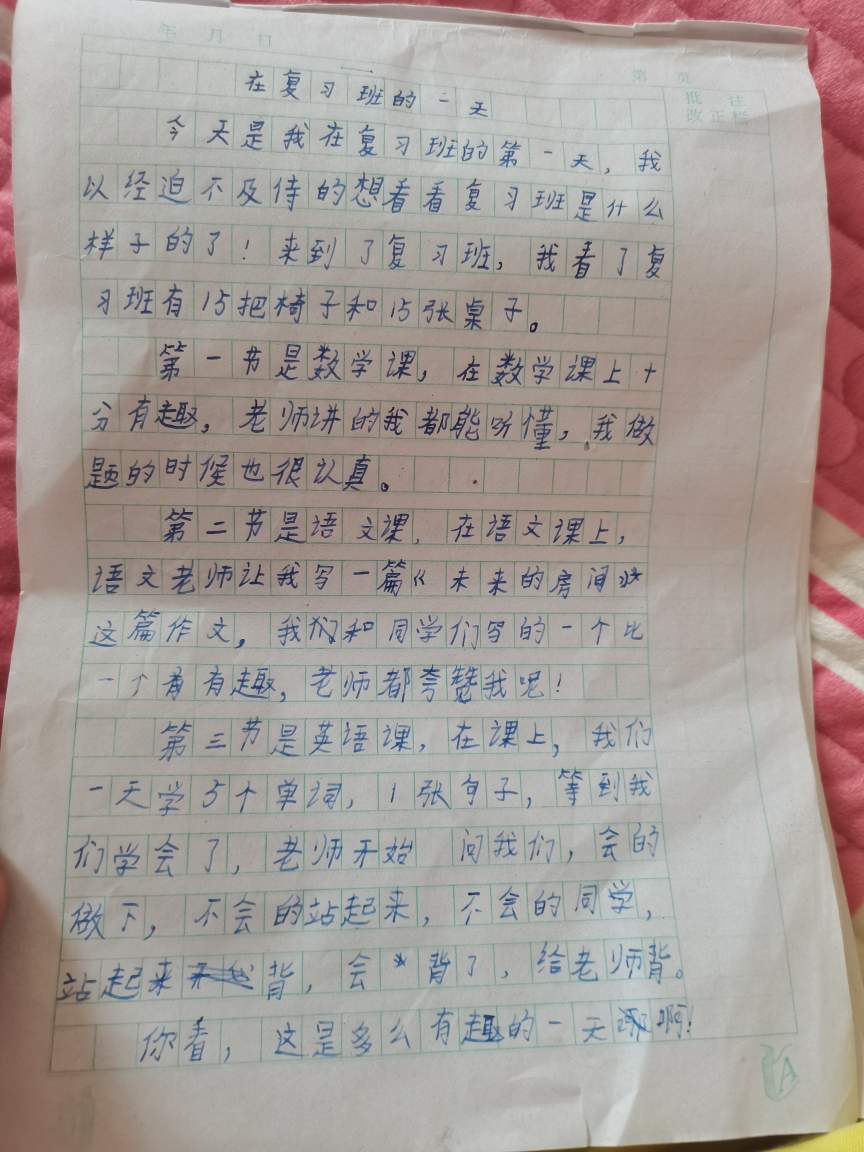 年 月 日
第 页
批 注
改正栏
在复习班的一天
今天是我在复习班的第一天，我
以经迫不及侍的想看看复习班是什么
样子的了！来到了复习班，我看了复
习班有15把椅子和15张桌子。
第一节是数学课，在数学课上十
分有趣，老师讲的我都能听懂，我做
题的时候也很认真。
第二节是语文课，在语文课上，
语文老师让我写一篇《未来的房间》
这篇作文，我和同学们写的一个比
一个有趣，老师都夸赞我呢！
第三节是英语课，在课上，我们
一天学5个单词，1张句子，等到我
们学会了，老师开始 问我们，会的
做下，不会的站起来，不会的同学，
站起来背，会背了，给老师背。
你看，这是多么有趣的一天啊！